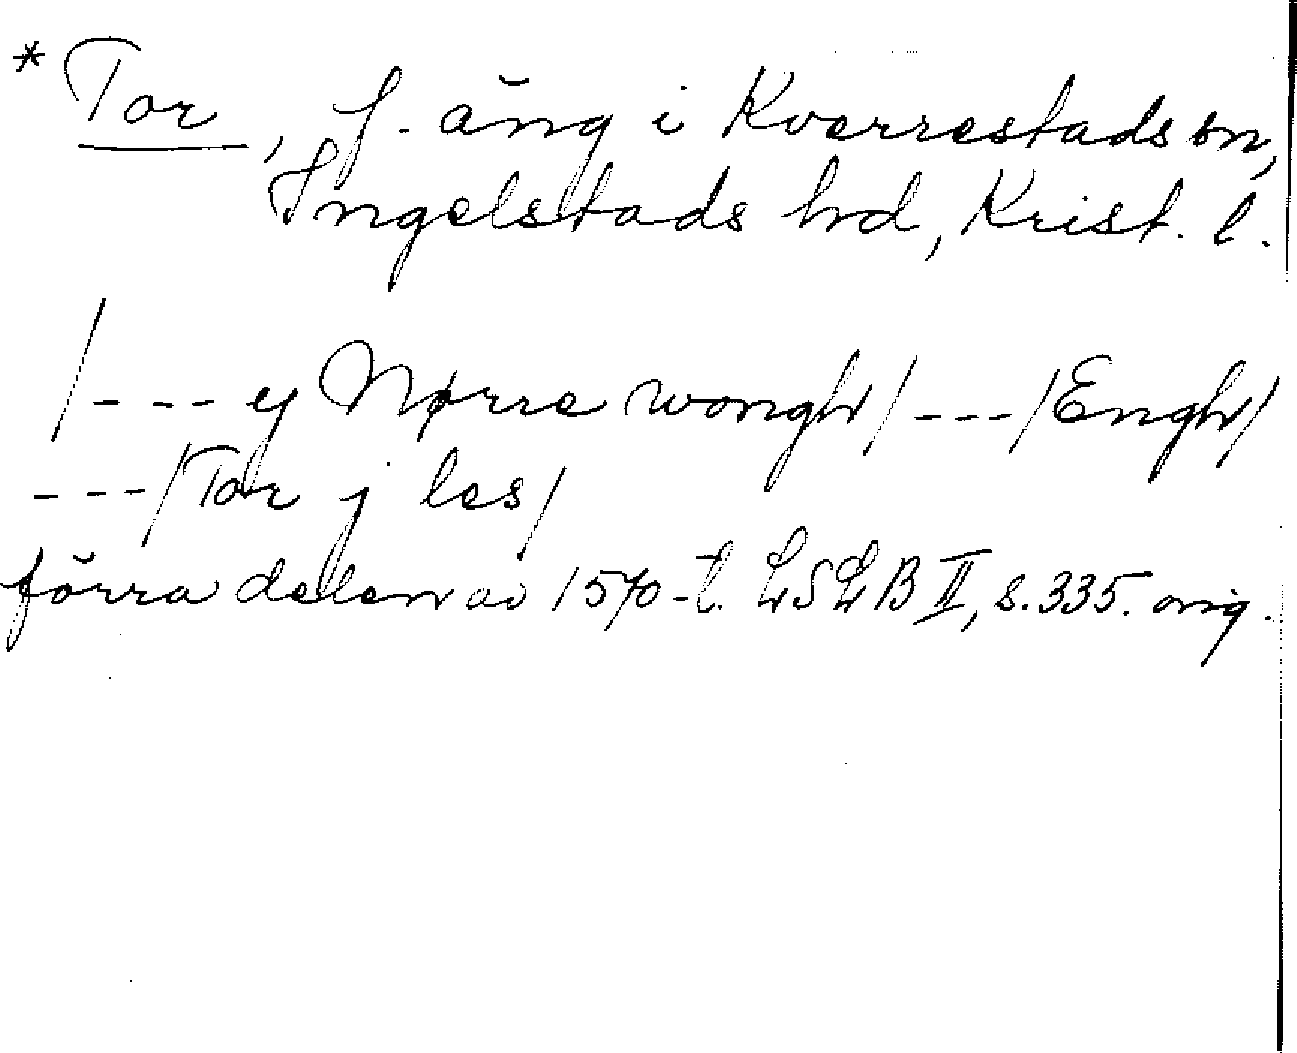 * Tor, f. äng i Kverrestads sn,
Ingelstads hd, Krist. l.
/--- ey Nørre wongh/ ---/Engh/
---/Tor j les/
förra delen av 1570-t. LSLB II, s. 335. orig.